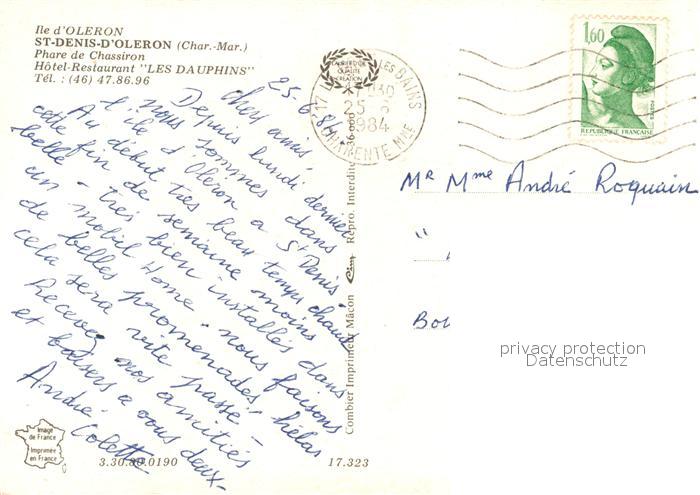 Ile d'OLERON
ST-DENIS-D'OLERON (Char.-Mar.)
Phare de Chassiron
Hôtel-Restaurant "LES DAUPHINS"
Tél. : (46) 47.86.96
25.6.84.
Chers amis,
Depuis lundi dernier
nous sommes dans
l'île d'Oléron a St Denis
Au début très beau temps chaud
cette fin de semaine moins
belle - très bien installés dans
un mobil Home - nous faisons
de belles promenades, hélas
cela sera vite passé -
Recevez nos amitiés
et baisers a vous deux -
André - Colette
Image
de France
Imprimée
en France
3.30.80.0190
17.323
Combier Imprimeur Mâcon
Repro. Interdite
LAURIER D'OR
QUALITE
CREATION
17
LES BAINS
25-6
1984
CHARENTE MME
1,60
POSTES
REPUBLIQUE FRANÇAISE
Mr Mme André Roquain
"
privacy protection
Datenschutz